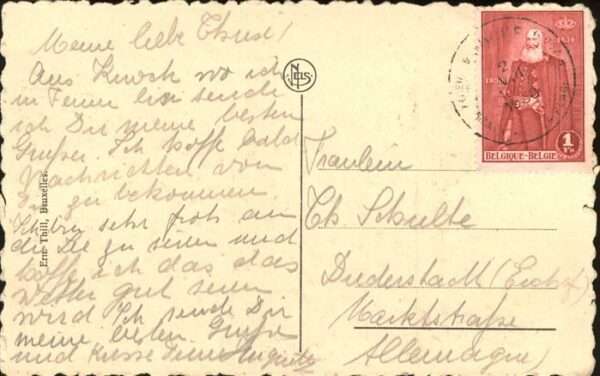 Meine liebe Thresi!
Aus Knock wo ich
in Ferien bin sende
ich Dir meine besten
Grüßen. Ich hoffe bald
Nachrichten von
zu bekommen
Ich bin sehr froh an
die See zu seien und
hoffe ich das das
Wetter gut sein
wird Ich sende Dir
meine besten Grüße
und Küsse Deine
Ern. Thill, Bruxelles.
NELS
1
BELGIQUE-BELGIE
Fräulein
Th. Schulte
Duderstadt (Eichsf)
Marktstraße
Allemagne